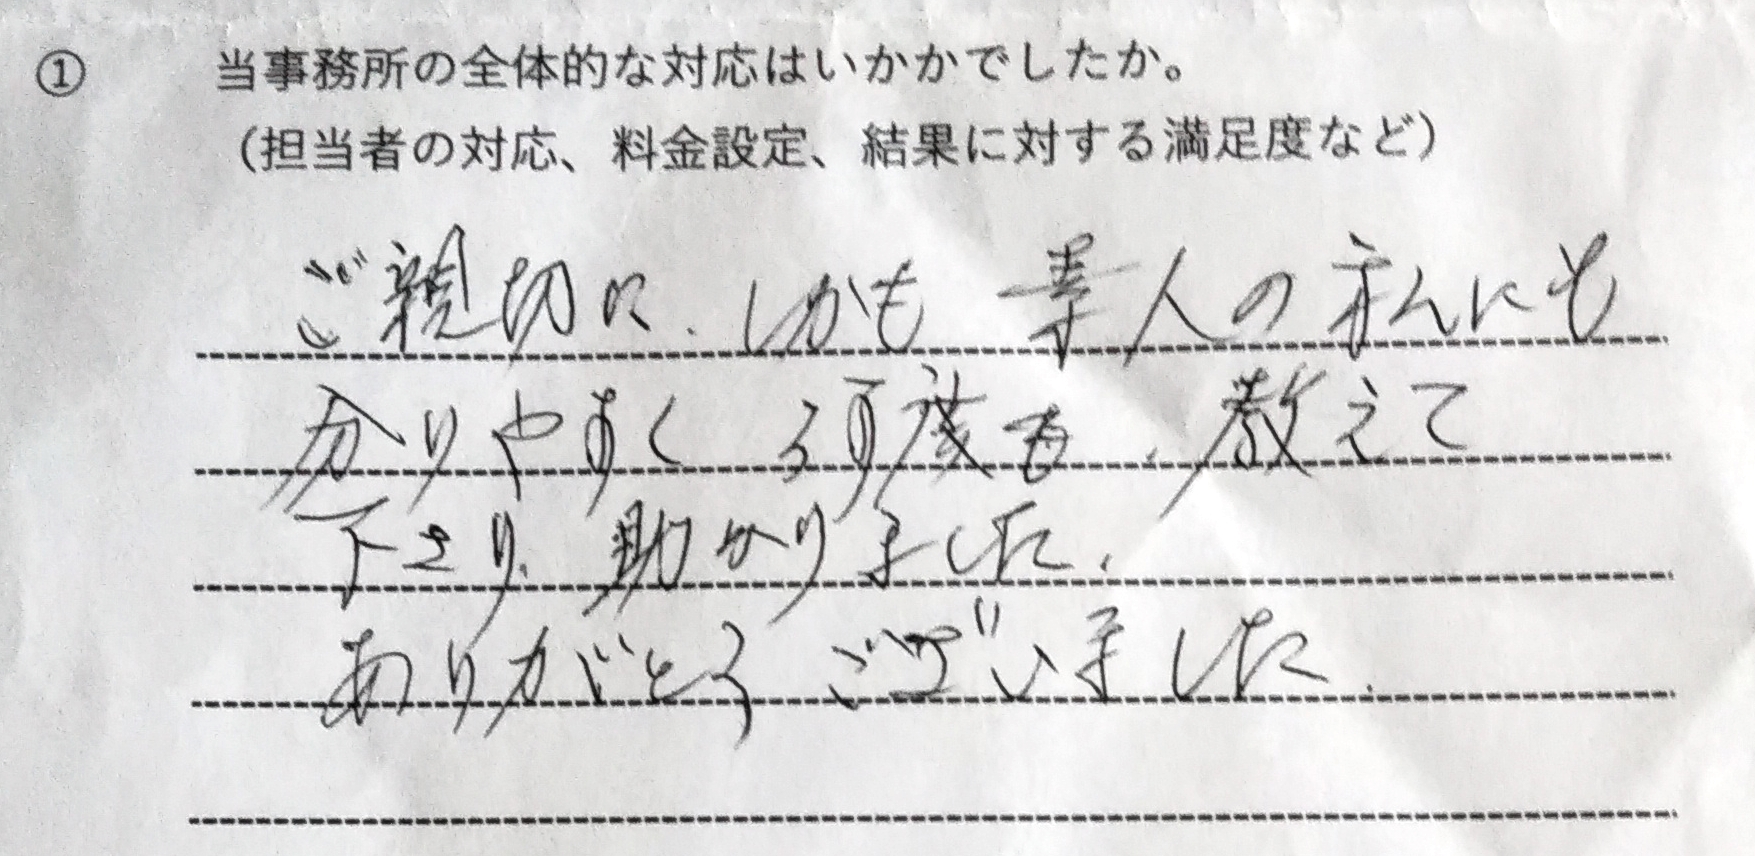 ① 当事務所の全体的な対応はいかかでしたか。
（担当者の対応、料金設定、結果に対する満足度など）
ご親切に、しかも 素人の私にも
分りやすく 何度も、教えて
下さり、助かりました。
ありがとう ございました。